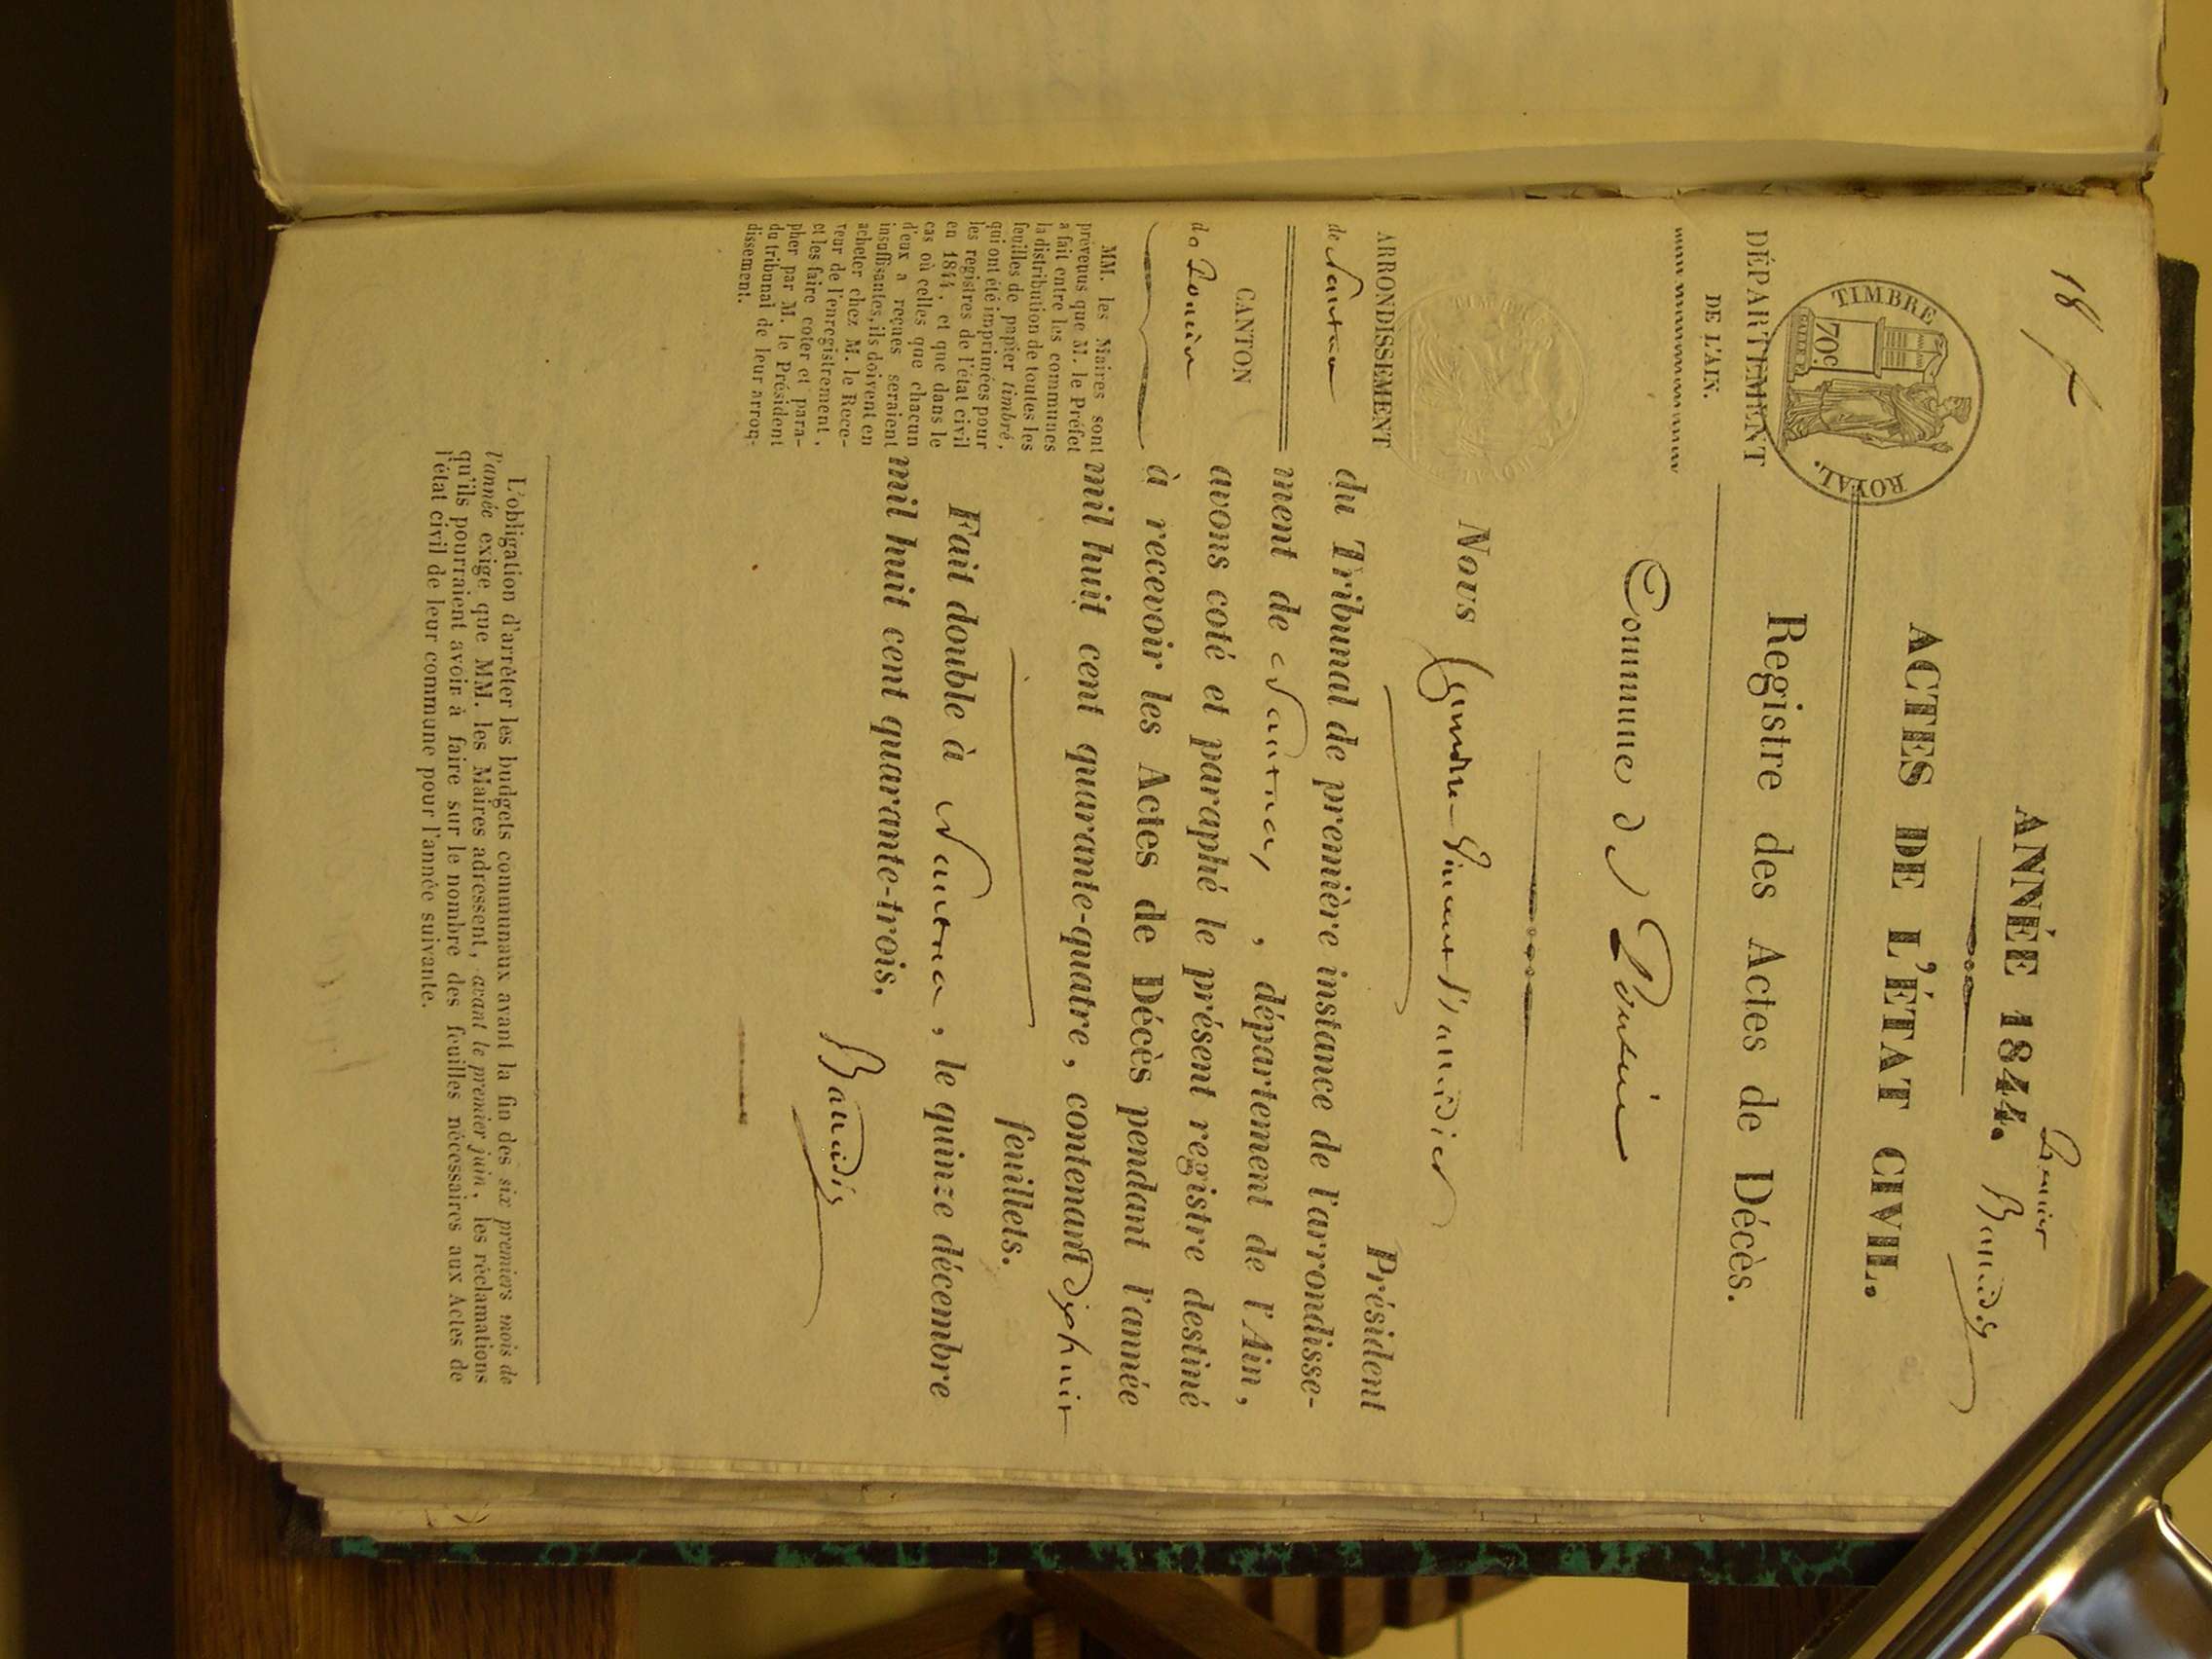 18 f
Premier Baudin
ANNÉE 1844.
TIMBRE ROYAL.
70c
ACTES DE L'ÉTAT CIVIL.
DÉPARTEMENT
DE L'AIN.
Registre des Actes de Décès.
Commune de Poncin
ARRONDISSEMENT
de Nantua
CANTON
de Poncin
MM. les Maires sont
prévenus que M. le Préfet
a fait entre les communes
la distribution de toutes les
feuilles de papier timbré,
qui ont été imprimées pour
les registres de l'état civil
en 1844, et que dans le
cas où celles que chacun
d'eux a reçues seraient
insuffisantes, ils doivent en
acheter chez M. le Rece-
veur de l'enregistrement,
et les faire coter et para-
pher par M. le Président
du tribunal de leur arron-
dissement.
Nous Président
du Tribunal de première instance de l'arrondisse-
ment de Nantua, , département de l'Ain,
avons coté et paraphé le présent registre destiné
à recevoir les Actes de Décès pendant l'année
mil huit cent quarante-quatre, contenant dix huit
feuillets.
Fait double à Nantua, le quinze décembre
mil huit cent quarante-trois.
Baudin
L'obligation d'arrêter les budgets communaux avant la fin des six premiers mois de
l'année exige que MM. les Maires adressent, avant le premier juin, les réclamations
qu'ils pourraient avoir à faire sur le nombre des feuilles nécessaires aux Actes de
l'état civil de leur commune pour l'année suivante.